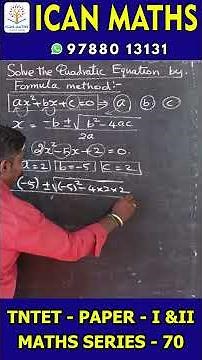 ICAN MATHS
ICAN MATHS
97880 13131
Solve the Quadratic Equation by
Formula method:-
ax²+bx+c=0 ⇒ a b c
x = -b ± √b²-4ac
2a
2x²-5x+2=0.
a=2 b=-5 c=2
(-5) ± √(-5)²-4×2×2
TNTET - PAPER - I &II
MATHS SERIES - 70